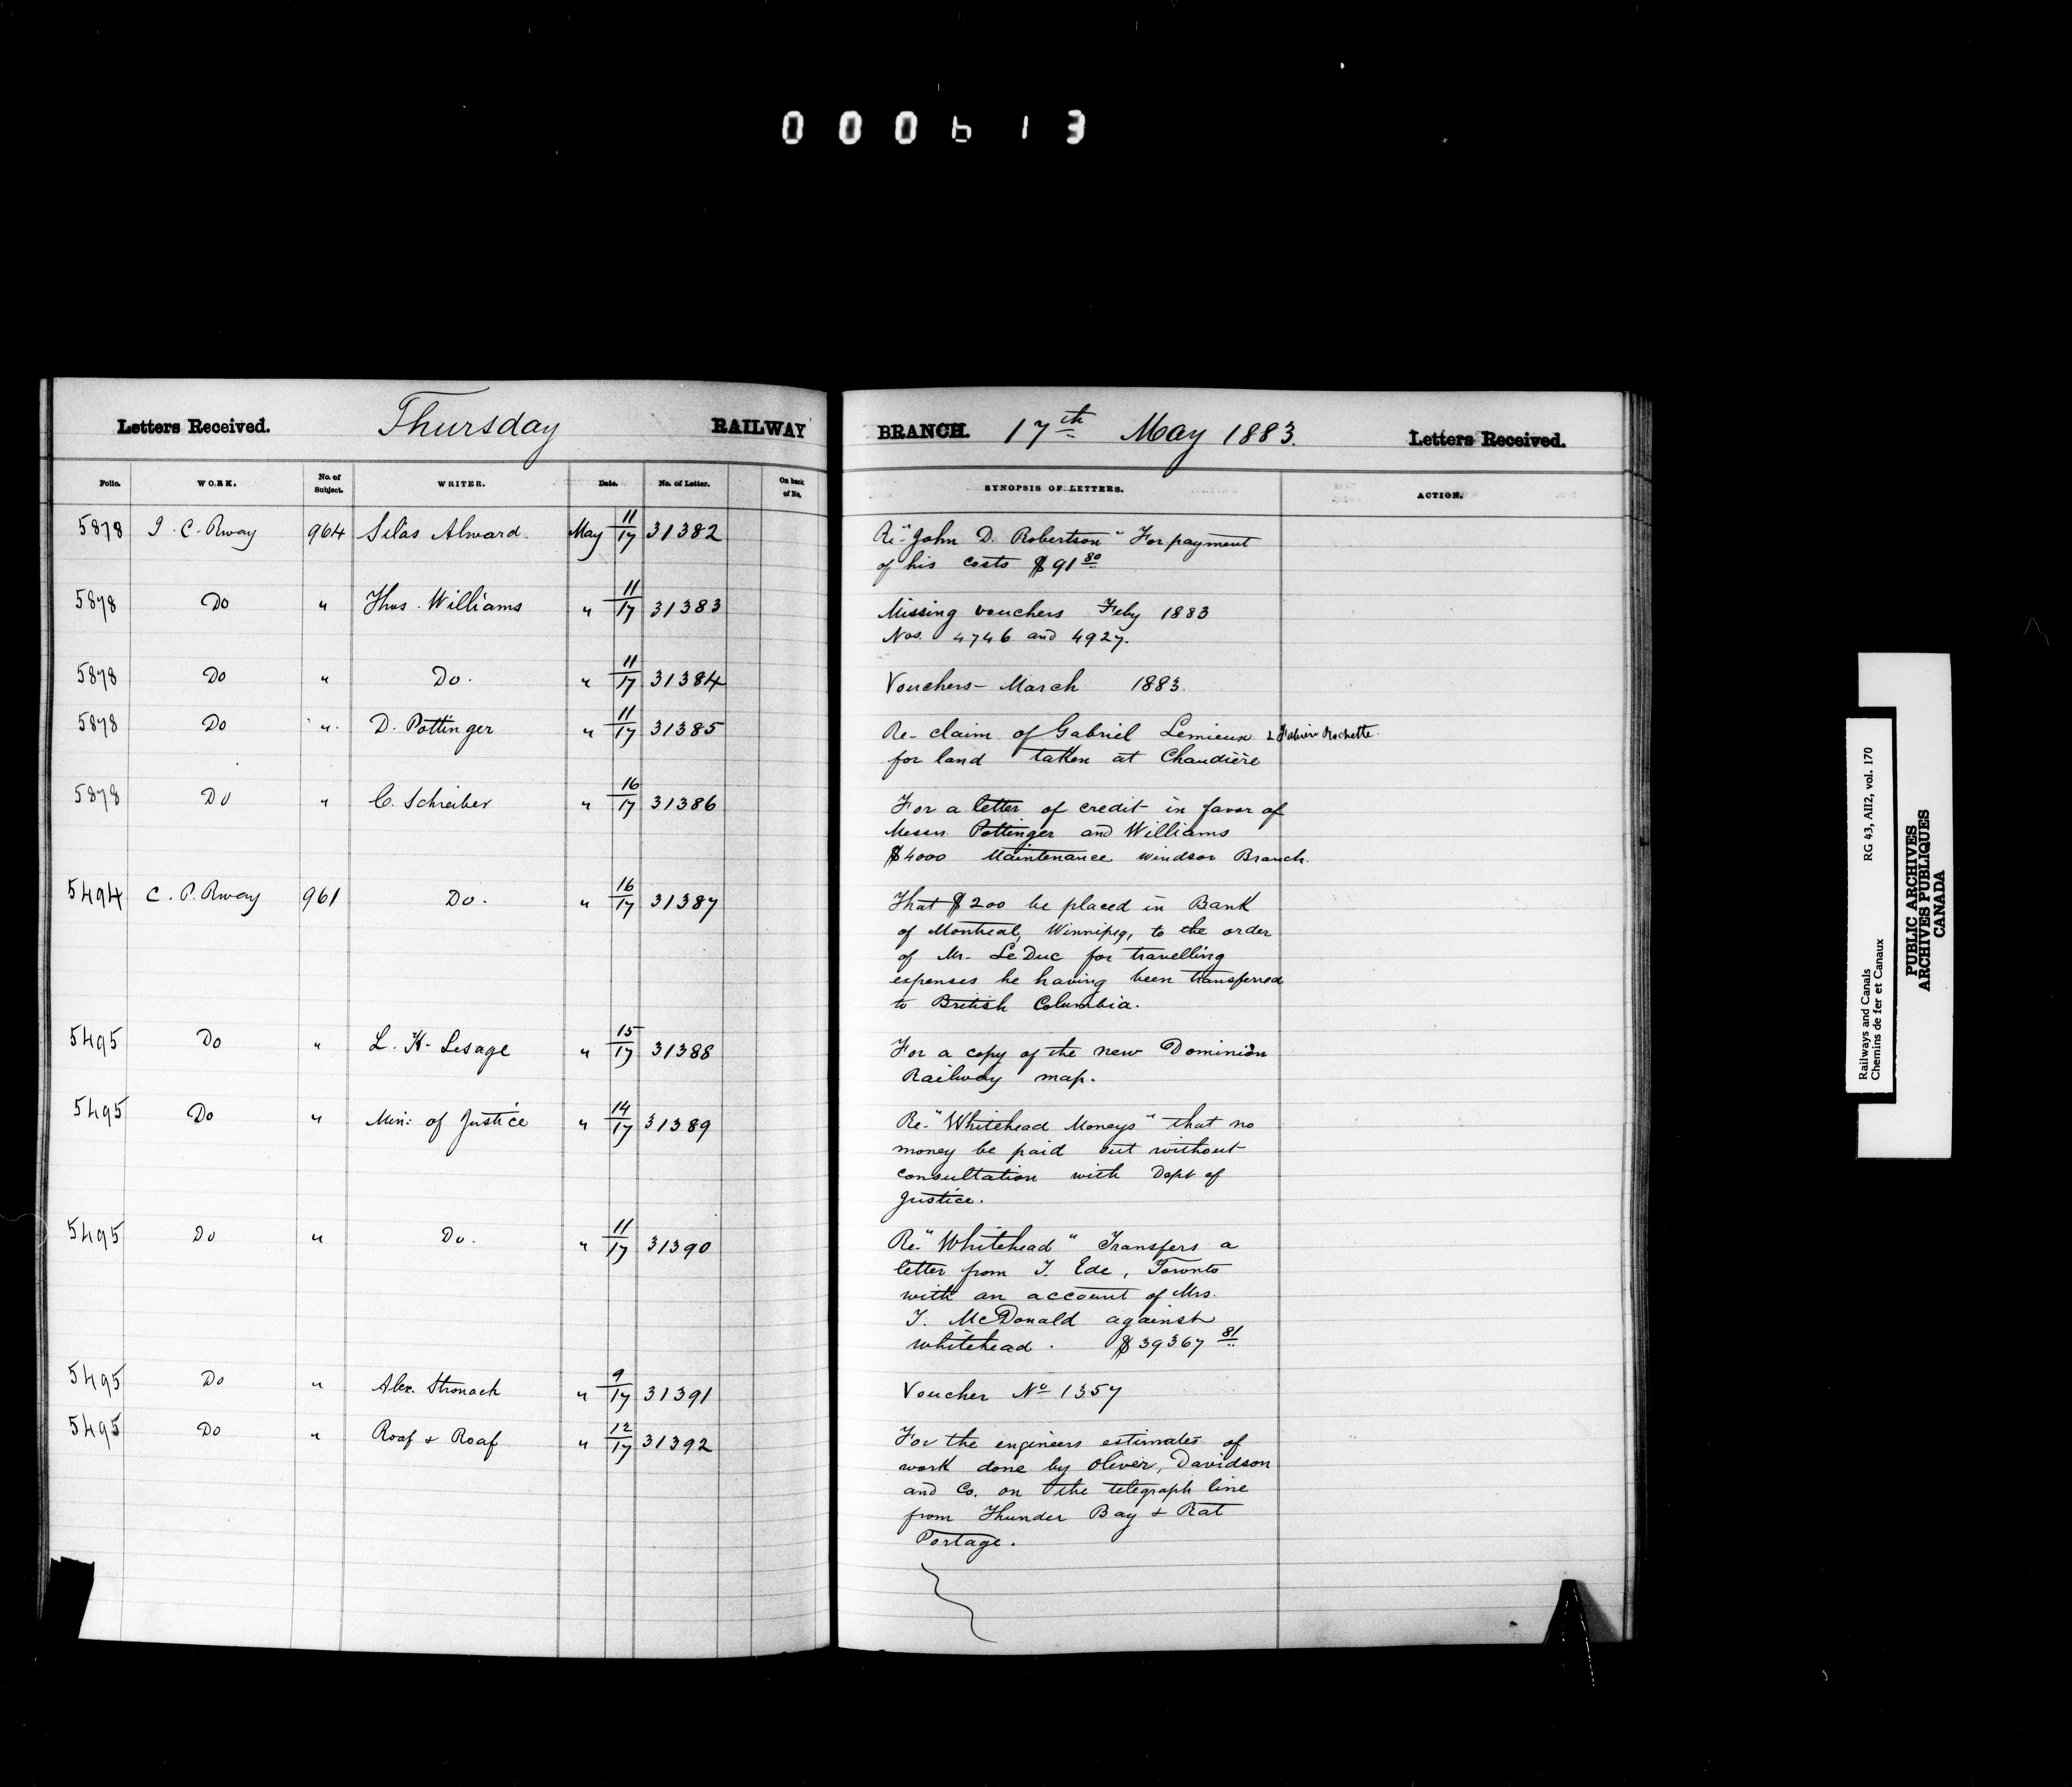 000613
Letters Received. Thursday RAILWAY BRANCH. 17th May 1883. Letters Received.
Folio. WORK. No. of Subject. WRITER. Date. No. of Letter. On back of No. SYNOPSIS OF LETTERS. ACTION.
5878 I. C. Rway 964 Silas Alward. May 11/17 31382 Re "John D. Robertson" For payment
of his costs $91 80
5878 Do " Thos. Williams " 11/17 31383 Missing vouchers Feby 1883
Nos. 4746 and 4927.
5878 Do " Do. " 11/17 31384 Vouchers - March 1883.
5878 Do " D. Pottinger " 11/17 31385 Re- claim of Gabriel Lemieux & Rochette
for land taken at Chaudière
5878 Do " C. Schreiber " 16/17 31386 For a letter of credit in favor of
Messrs. Pottinger and Williams
$4000 Maintenance Windsor Branch.
5494 C. P. Rway 961 Do. " 16/17 31387 That $200 be placed in Bank
of Montreal, Winnipeg, to the order
of Mr. LeDuc for travelling
expenses he having been transferred
to British Columbia.
5495 Do " L. K. Lesage " 15/17 31388 For a copy of the new Dominion
Railway map.
5495 Do " Min: of Justice " 14/17 31389 Re- "Whitehead Moneys" that no
money be paid out without
consultation with Dept of
Justice.
5495 Do " Do. " 11/17 31390 Re. "Whitehead" Transfers a
letter from J. Ede, Toronto
with an account of Mrs.
J. McDonald against
Whitehead. $39367 81
5495 Do " Alex. Stronach " 9/17 31391 Voucher No 1357
5495 Do " Roaf & Roaf " 12/17 31392 For the engineers estimates of
work done by Oliver, Davidson
and Co. on the telegraph line
from Thunder Bay & Rat
Portage.
Railways and Canals RG 43, AII2, vol. 170
Chemins de fer et Canaux
PUBLIC ARCHIVES
ARCHIVES PUBLIQUES
CANADA